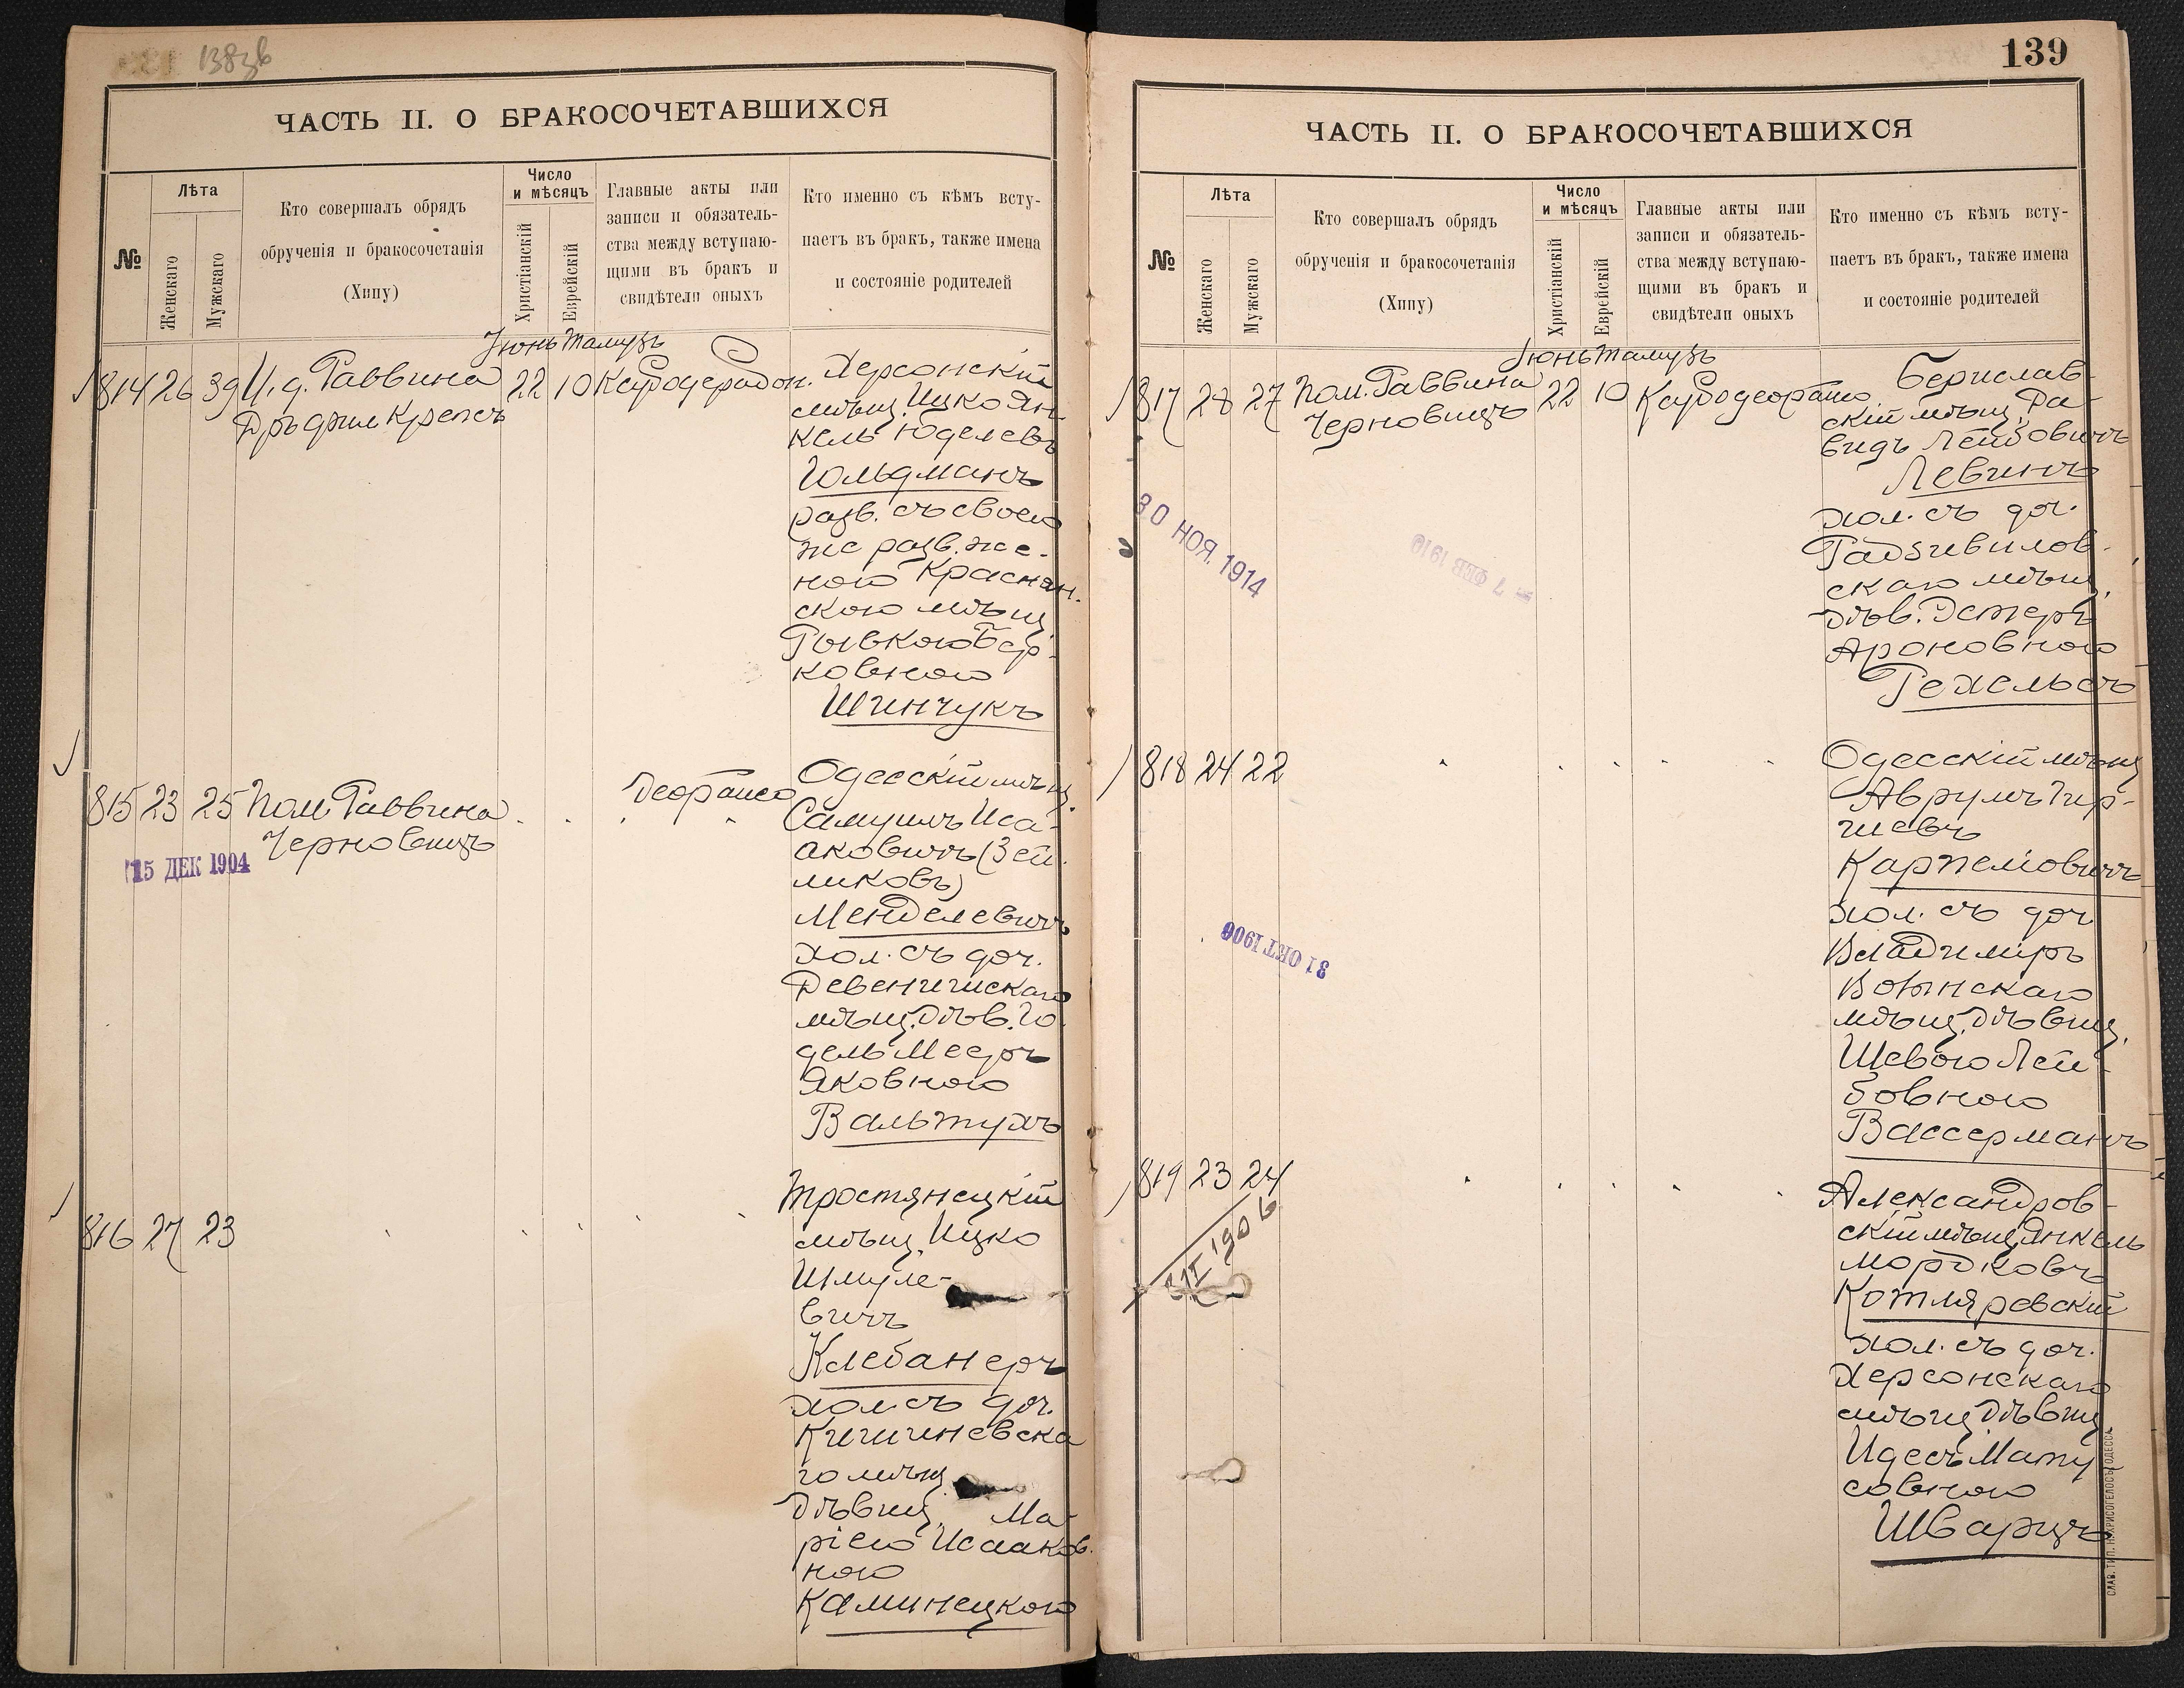 138зв
ЧАСТЬ II. О БРАКОСОЧЕТАВШИХСЯ
№
Лѣта
Женскаго
Мужскаго
Кто совершалъ обрядъ
обрученія и бракосочетанія
(Хипу)
Число
и мѣсяцъ
Христіанскій
Еврейскій
Главные акты или
записи и обязатель-
ства между вступаю-
щими въ бракъ и
свидѣтели оныхъ
Кто именно съ кѣмъ всту-
паетъ въ бракъ, также имена
и состояніе родителей
Іюнь Тамузъ
814 26 39 И. д. Раввина 22 10
Крепсъ
Херсонскій
мѣщ. Ицко Ян-
кель Юделевъ
Гольдманъ
разв. съ своею
же разв. же-
ною
скою мѣщ.
Рывкою Бер-
ковною
Шинчукъ
815 23 25 Пом. Раввина
Черновицъ
15 ДЕК 1904
Одесскій мѣщ.
Самуилъ Иса-
аковичъ (Зей-
ликовъ)
Менделевичъ
хол. съ доч.
Девенишскаго
мѣщ. дѣв. Го-
дель Мееръ
Яковною
Вальтухъ
816 27 23
Тростянецкій
мѣщ. Ицко
Шмуле-
вичъ
Клебанеръ
хол. съ доч.
Кишиневска
го мѣщ.
дѣвиц. Ма-
ріею Исааков-
ною
Каминецкою
139
ЧАСТЬ II. О БРАКОСОЧЕТАВШИХСЯ
№
Лѣта
Женскаго
Мужскаго
Кто совершалъ обрядъ
обрученія и бракосочетанія
(Хипу)
Число
и мѣсяцъ
Христіанскій
Еврейскій
Главные акты или
записи и обязатель-
ства между вступаю-
щими въ бракъ и
свидѣтели оныхъ
Кто именно съ кѣмъ всту-
паетъ въ бракъ, также имена
и состояніе родителей
Іюнь Тамузъ
817 28 27 Пом. Раввина 22 10
Черновицъ
30 НОЯ. 1914
7 ФЕВ 1910
Берислав-
скій мѣщ. Да-
видъ Лейбовичъ
Левинъ
хол. съ доч.
Радзивилов-
скаго мѣщ.
дѣв. Эстеръ
Ароновною
Гехельсъ
818 24 22
31 ОКТ 1906
Одесскій мѣщ
Аврумъ Гир-
шевъ
Карпеловичъ
хол. съ доч
Владиміръ
Волынскаго
мѣщ. дѣвиц.
Шевою Лей-
бовною
Вассерманъ
819 23 24
Александров-
скій мѣщ. Янкель
Мордковъ
Котляревскій
хол. съ доч.
Херсонскаго
мѣщ. дѣвиц.
Идесъ Мату
совною
Шварцъ
СЛАВ. ТИП. Н. ХРИСОГЕЛОСЪ ОДЕССА